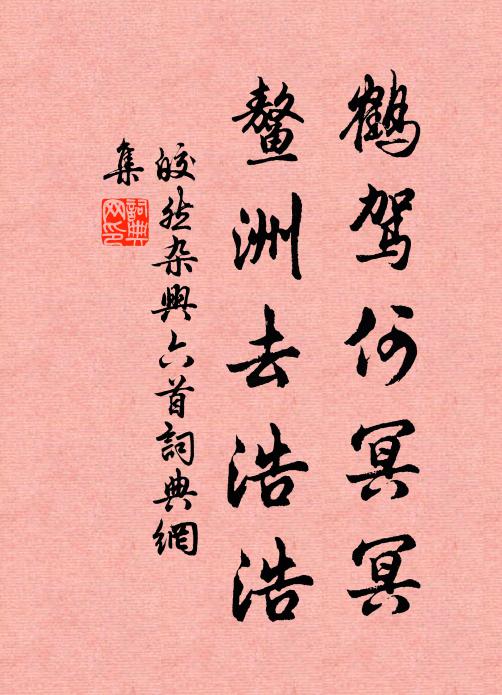 鶴驾何冥冥
鳌洲去浩浩
皎然杂興六首詞典網
集
詞典
网印